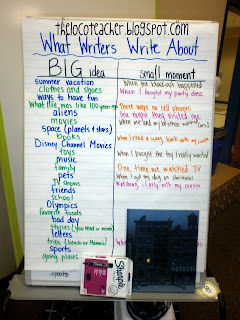 thelocoteacher.blogspot.com
What Writers Write About
BIG idea
small moment
summer vacation
When the
clothes and shoes
When I bought my party dress
ways to have fun
What life was like 100 years ago
There were no cell phones
aliens
movies
When me and my brother watched Cars 2
space (planets & stars)
books
When I read a book with my cousin
Disney Channel Movies
toys
When I bought the toy I really wanted
music
family
One time we watched TV
pets
When I got my dog on Christmas
TV shows
Watching iCarly with my cousin
friends
school
Olympics
favorite foods
bad day
stories (you read or wrote)
letters
trips (friends or Mamas)
When
sports
going places
Sharpie